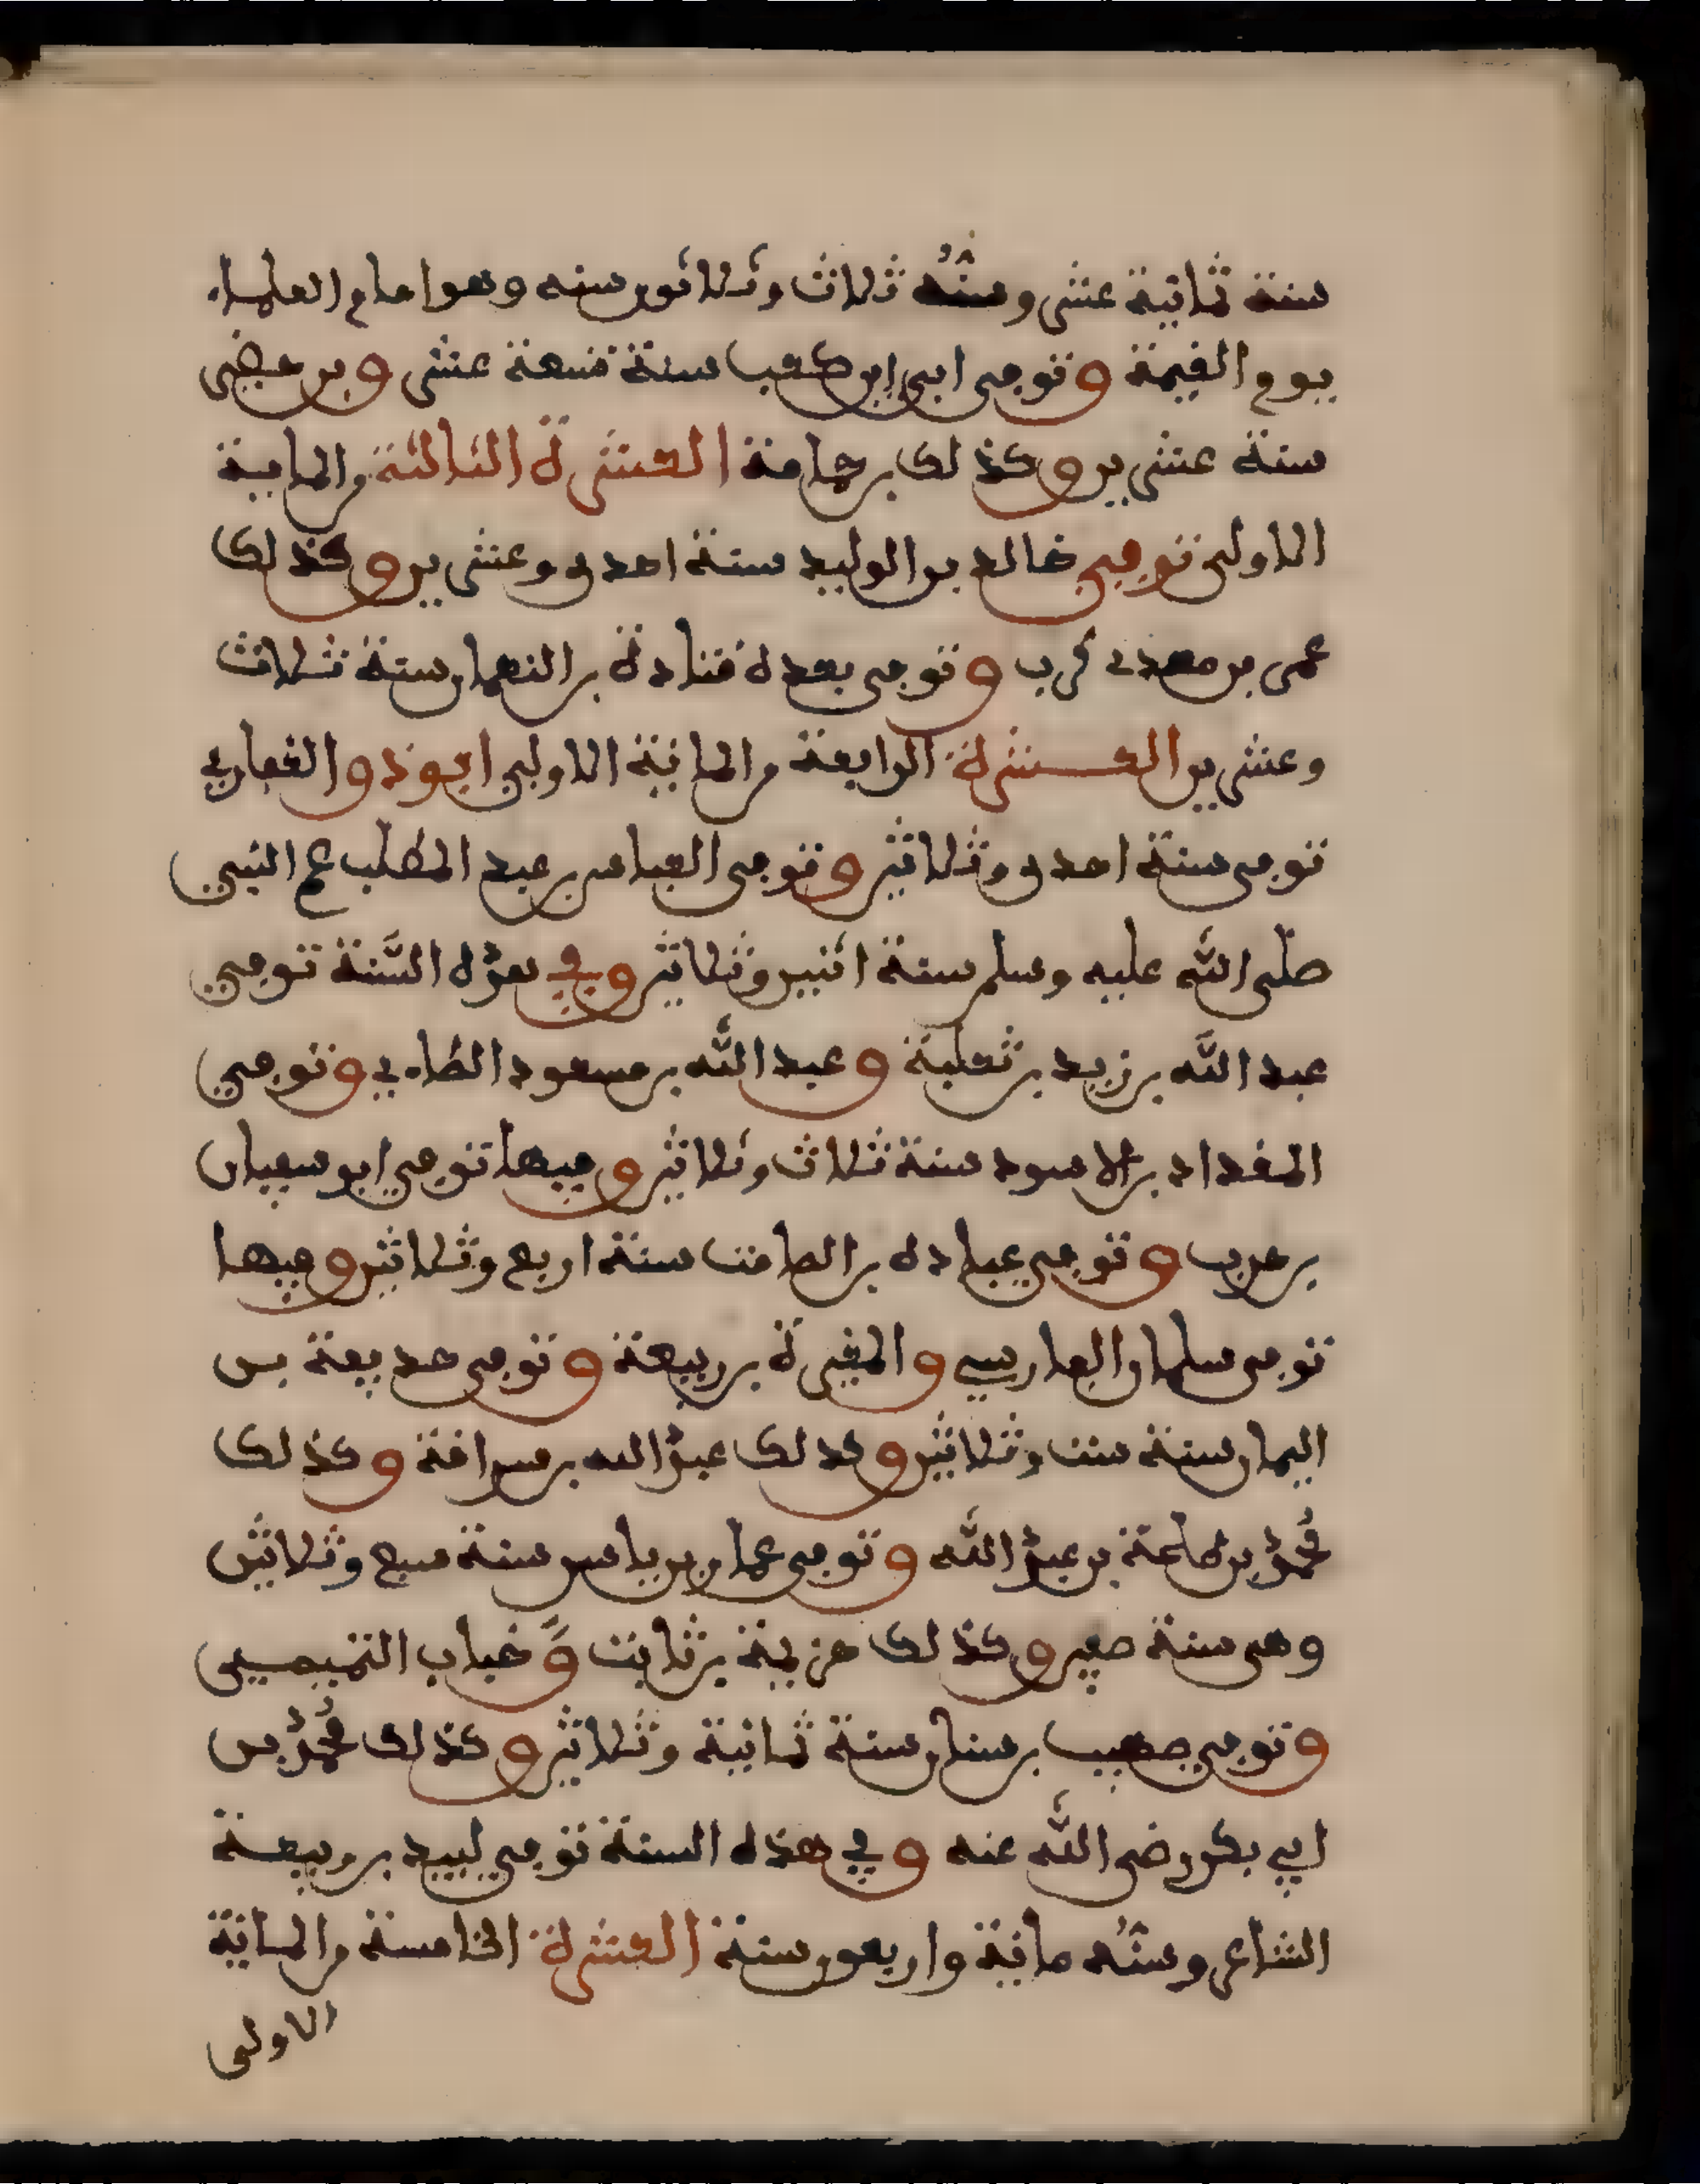 سنة ثمانية عشر وسنُّه ثلاث وثلاثون سنه وهو امام العلماء
يوم القيمة وتوفى ابى ابن كعب سنة تسعة عشر وبن حضى
سنة عشرين وكذلك بن حمامة العشرة الثالثة من الماية
الاولى توفي خالد بن الوليد سنة احدى وعشرين وكذلك
عمر بن معدى كرب وتوفى بعده قتادة بن النعمان سنة ثلاث
وعشرين العشرة الرابعة من المائية الاولى ابو ذر والغفاري
توفى سنة احدى وثلاثين وتوفى العباس بن عبد المطلب عم النبي
صلى الله عليه وسلم سنة اثنين وثلاثين وفي هذه السَّنة توفي
عبد الله بن زيد بن ثعلبة وعبد الله بن مسعود الطاءي وتوفي
المقداد بن الاسود سنة ثلاث وثلاثين وفيها توفي ابو سفيان
بن حرب وتوفي عبادة بن الصامت سنة اربع وثلاثين وفيها
توفى سلمان الفارسي والمغيرة بن ربيعة وتوفى حذيفة بن
اليمان سنة ست وثلاثين وكذلك عبد الله بن سراقة وكذلك
محمد بن طلحة بن عبد الله وتوفى عمار بن ياسر سنة سبع وثلاثين
وهى سنة صفين وكذلك خزيمة بن ثابت وَّخباب التميمي
وتوفي صهيب بن سنان سنة ثمانية وثلاثين وكذلك محمد بن
ابي بكر رضى الله عنه وفي هذه السنة توفي لبيد بن ربيعة
الشاعر وسنُّه مائية واربعون سنة العشرة الخامسة من الماية
الاولى